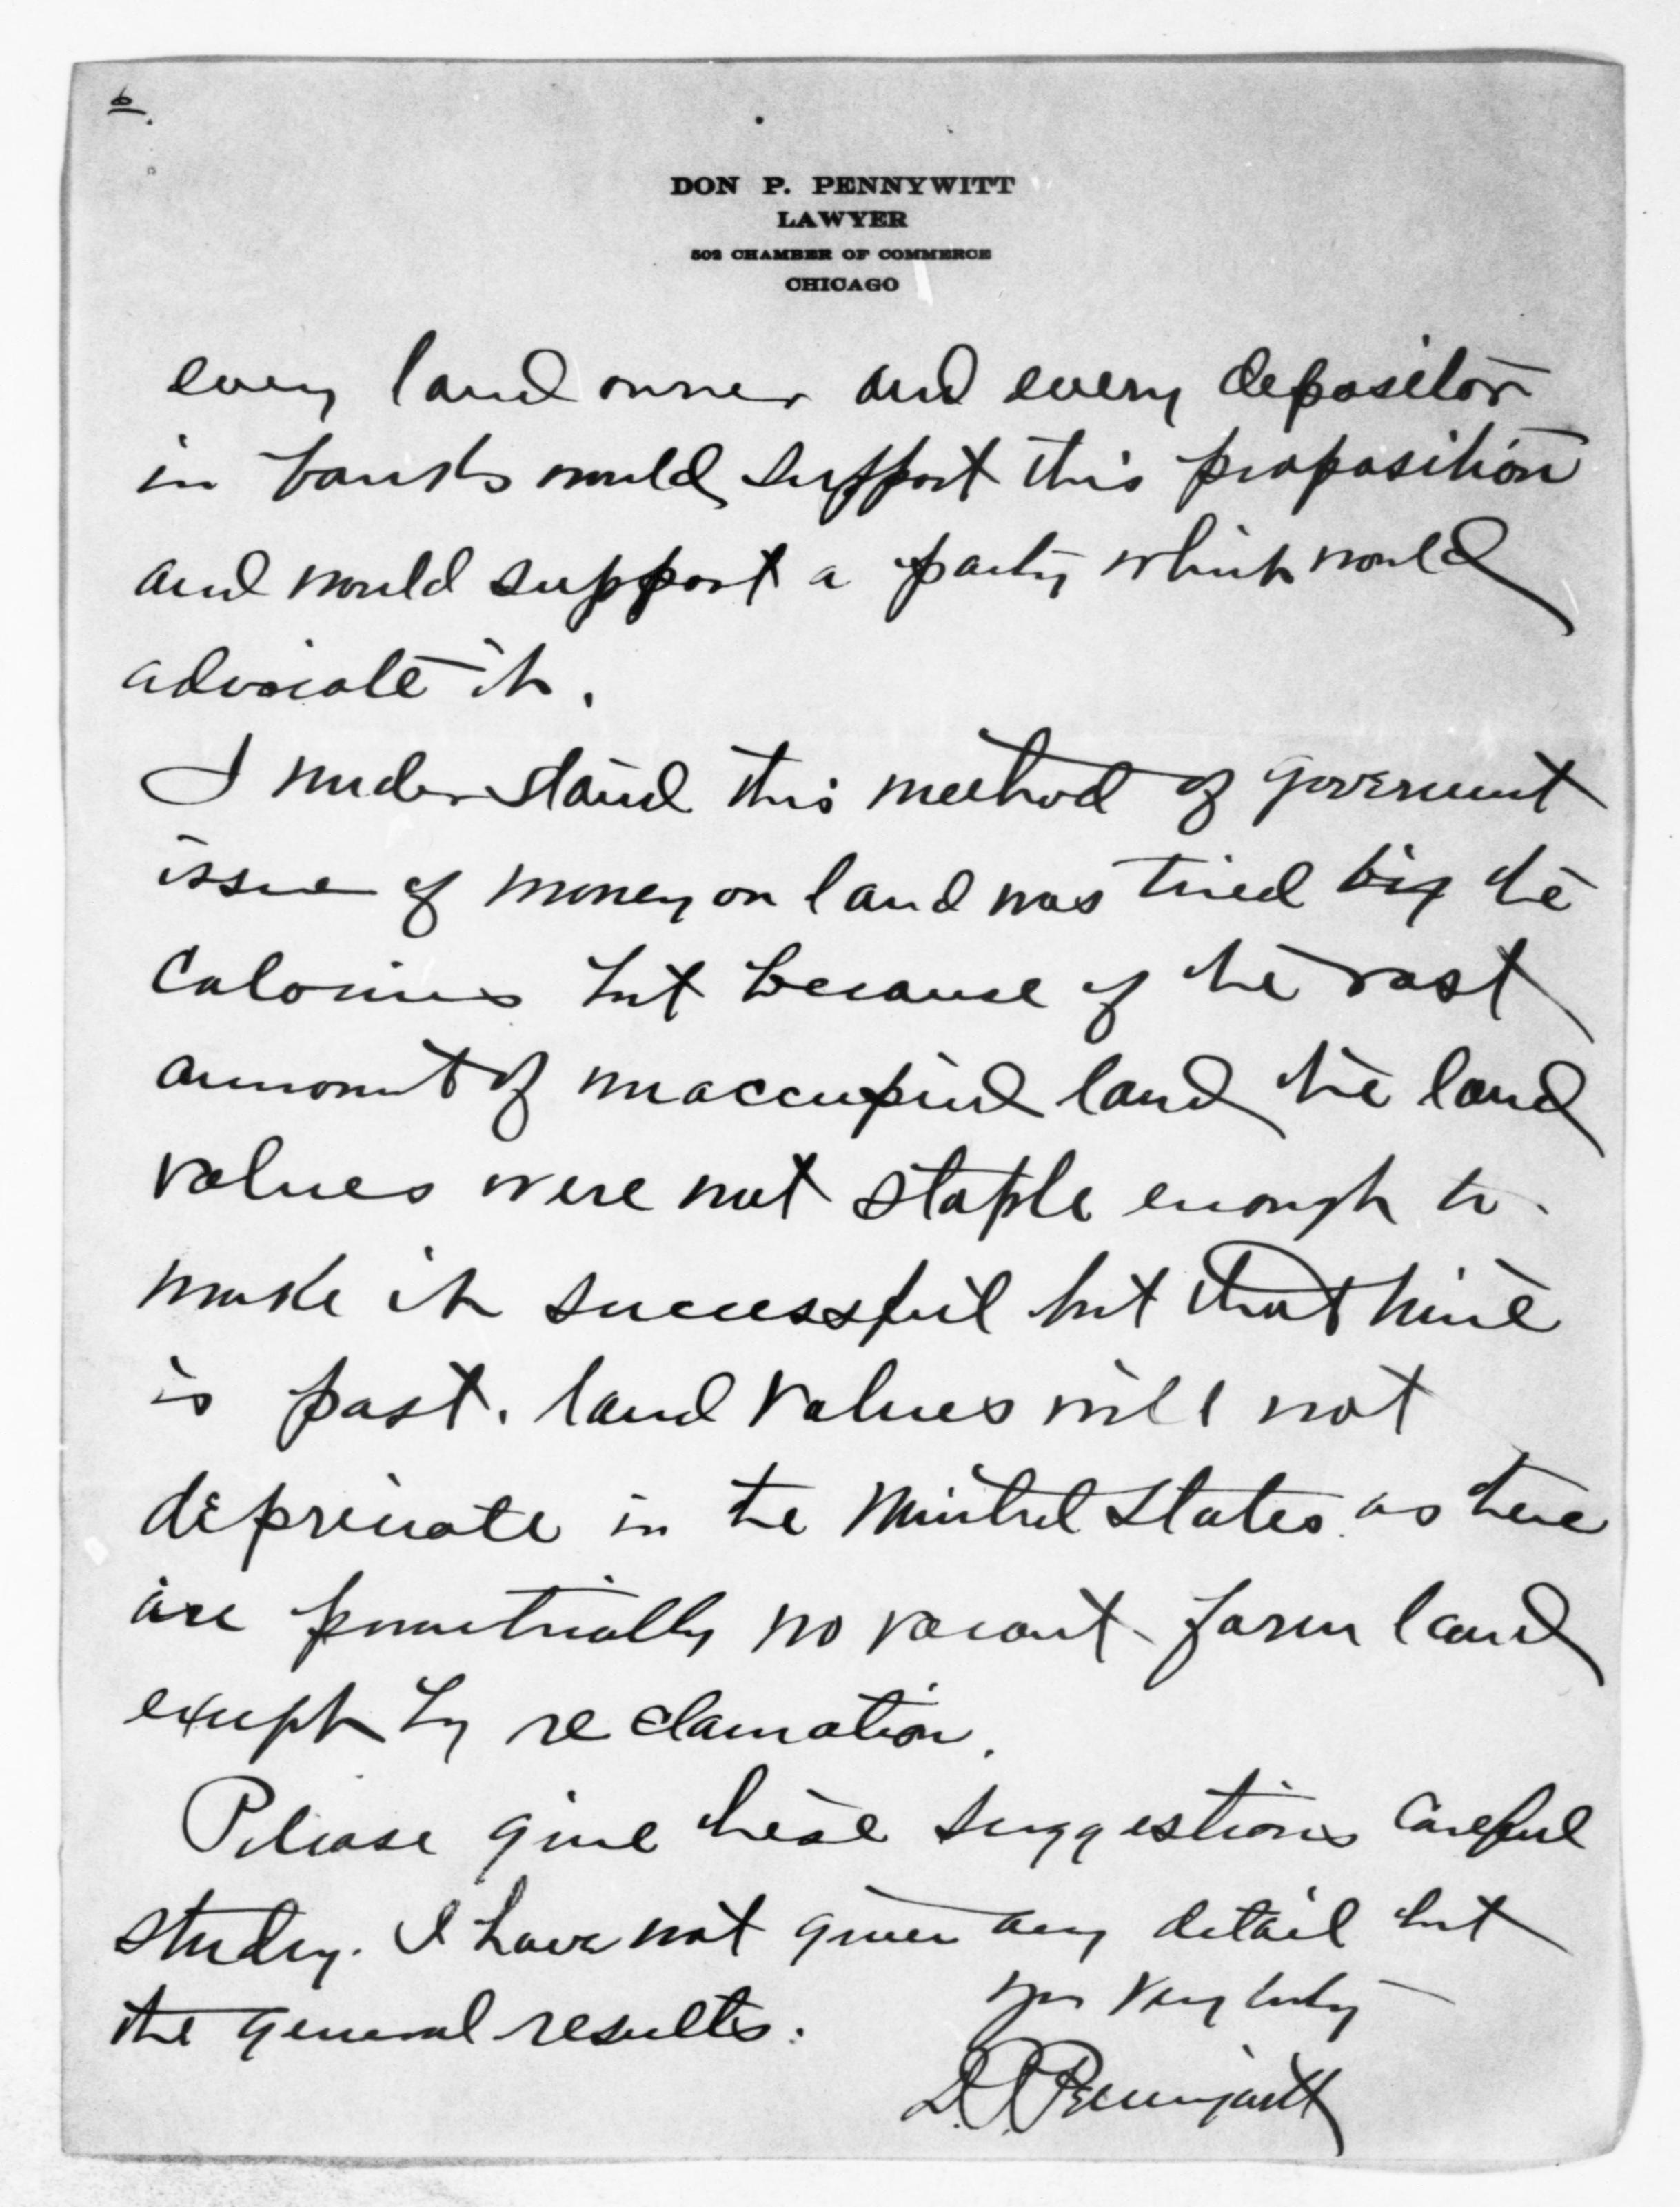 6.
DON P. PENNYWITT
LAWYER
502 CHAMBER OF COMMERCE
CHICAGO
every land owner and every depositor
in banks would support this proposition
and would support a party which would
advocate it.
I understand this method of goverment
issue of money on land was tried by the
Colonies but because of the vast
amount of unoccupied land the land
values were not staple enough to
make it successful but that time
is past. land values will not
depreciate in the United States as there
are practically no vacant farm land
except by reclamation.
Please give these suggestions careful
study. I have not given any detail but
the general results.
Yrs Very truly
D. P. Pennywitt